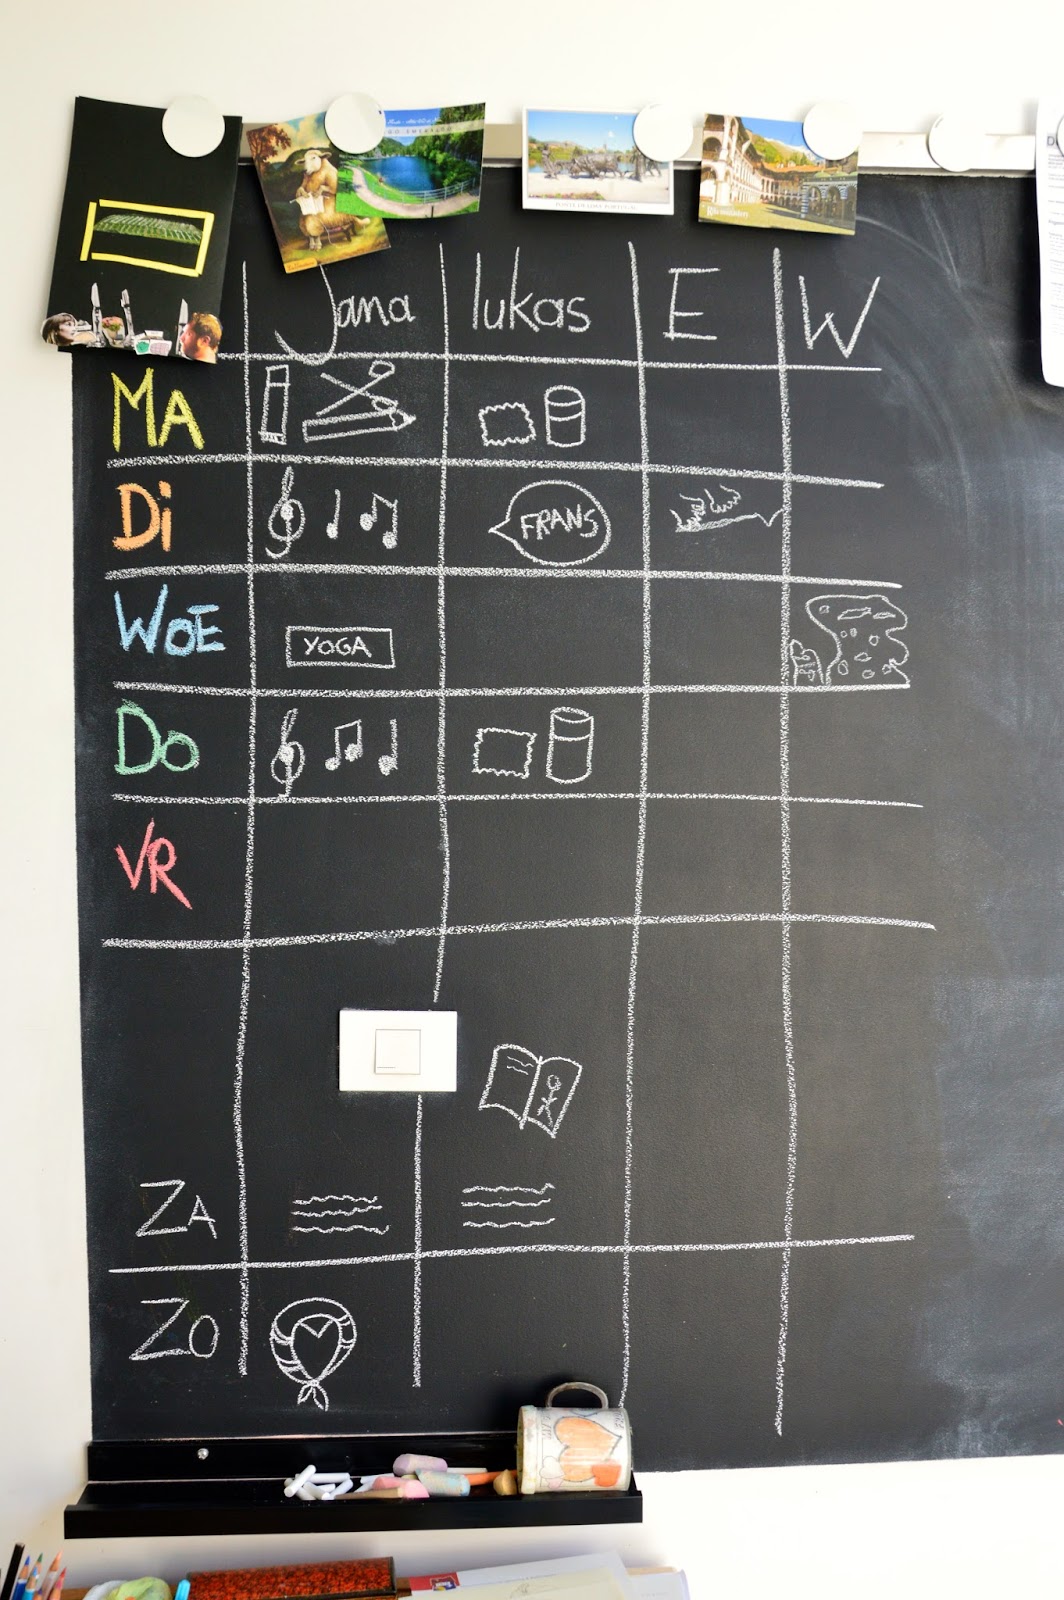 Jana lukas E W
MA
Di FRANS
WOE YOGA
Do
VR
ZA
ZO